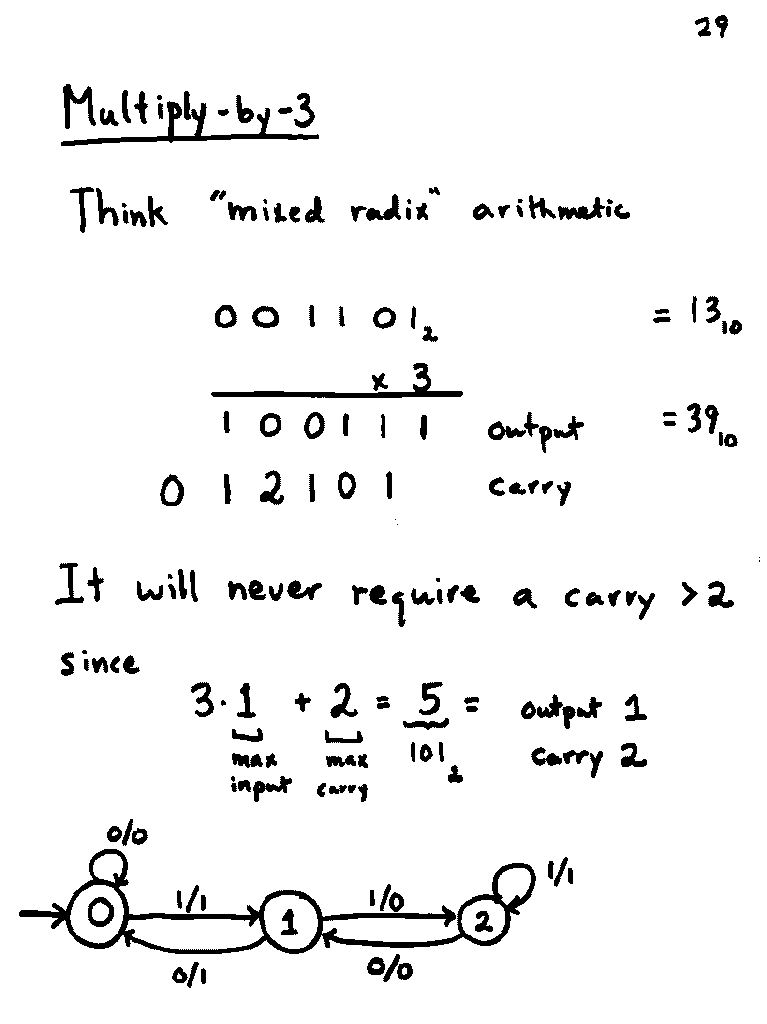 29
Multiply-by-3
Think "mixed radix" arithmetic
0 0 1 1 0 1₂ = 13₁₀
x 3
1 0 0 1 1 1 output = 39₁₀
0 1 2 1 0 1 carry
It will never require a carry > 2
since
3·1 + 2 = 5 = output 1
max max 101₂ carry 2
input carry
0/0
1/1
1/1 1/0
0 1 2
0/1 0/0